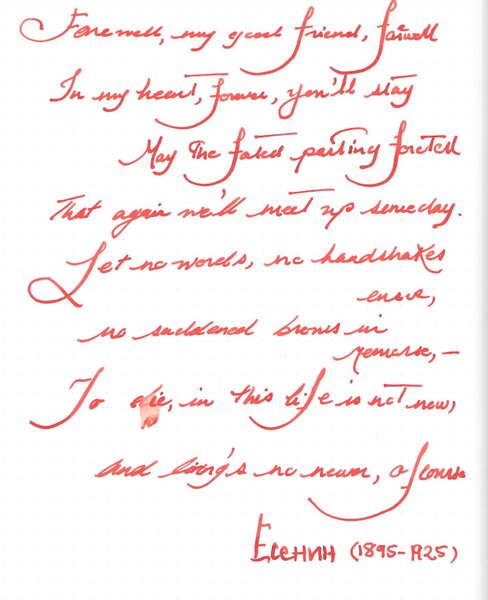 Farewell, my good friend, farwell
In my heart, forever, you'll stay
May the fated parting foretell
That again we'll meet up someday.
Let no words, no handshakes
ensue,
no saddened brows in
remorse, —
To die, in this life is not new,
and living's no newer, of course
Есенин (1895-1925)